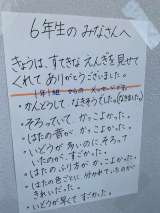 6年生のみなさんへ
きょうは、すてきなえんぎを見せて
くれてありがとうございました。
・かんどうしてなきそうでした。(なきました。)
・そろっていてかっこよかった。
・はたの音がかっこよかった。
・いどうがあいのにそろって
いたのが、すごかった。
・はたのふり方がかっこよかった。
・はたの色ごとに分かれているのが
きれいだった。
・いどうが早くてすごかった。